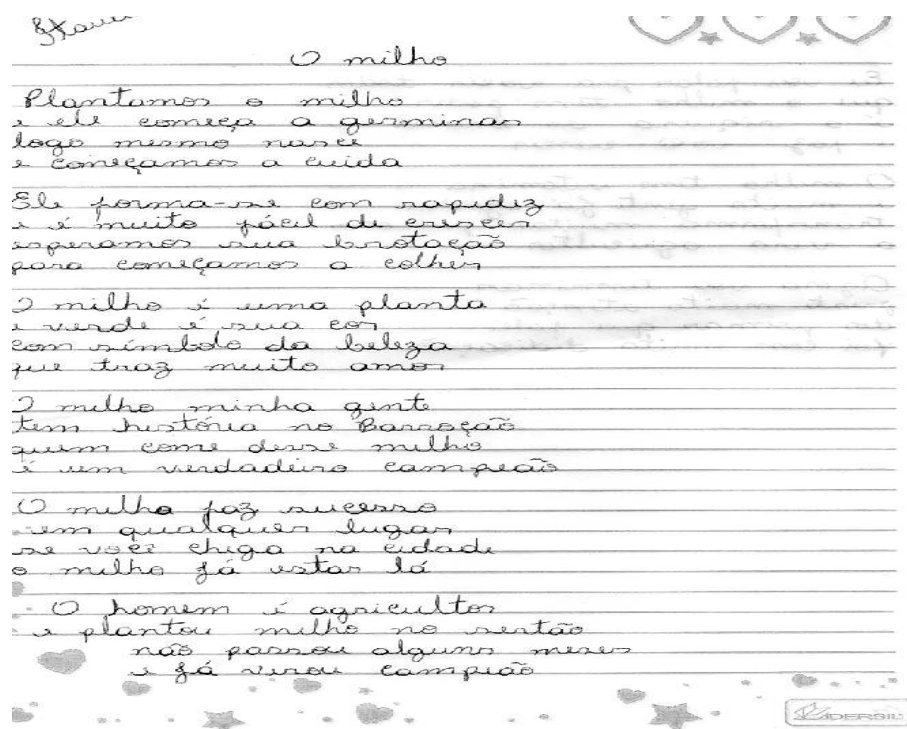 O milho
Plantamos o milho
e ele começa a germinar
logo mesmo nasce
e começamos a cuida
Ele forma-se com rapidez
e é muito fácil de crescer
esperamos sua brotação
para começamos a colher
O milho é uma planta
e verde é sua cor
com símbolo da beleza
que traz muito amor
O milho minha gente
tem história no Barroção
quem come desse milho
é um verdadeiro campeão
O milho faz sucesso
em qualquer lugar
se você chega na cidade
o milho já estar lá
O homem é agricultor
e plantou milho no sertão
não passou alguns meses
e já virou campeão